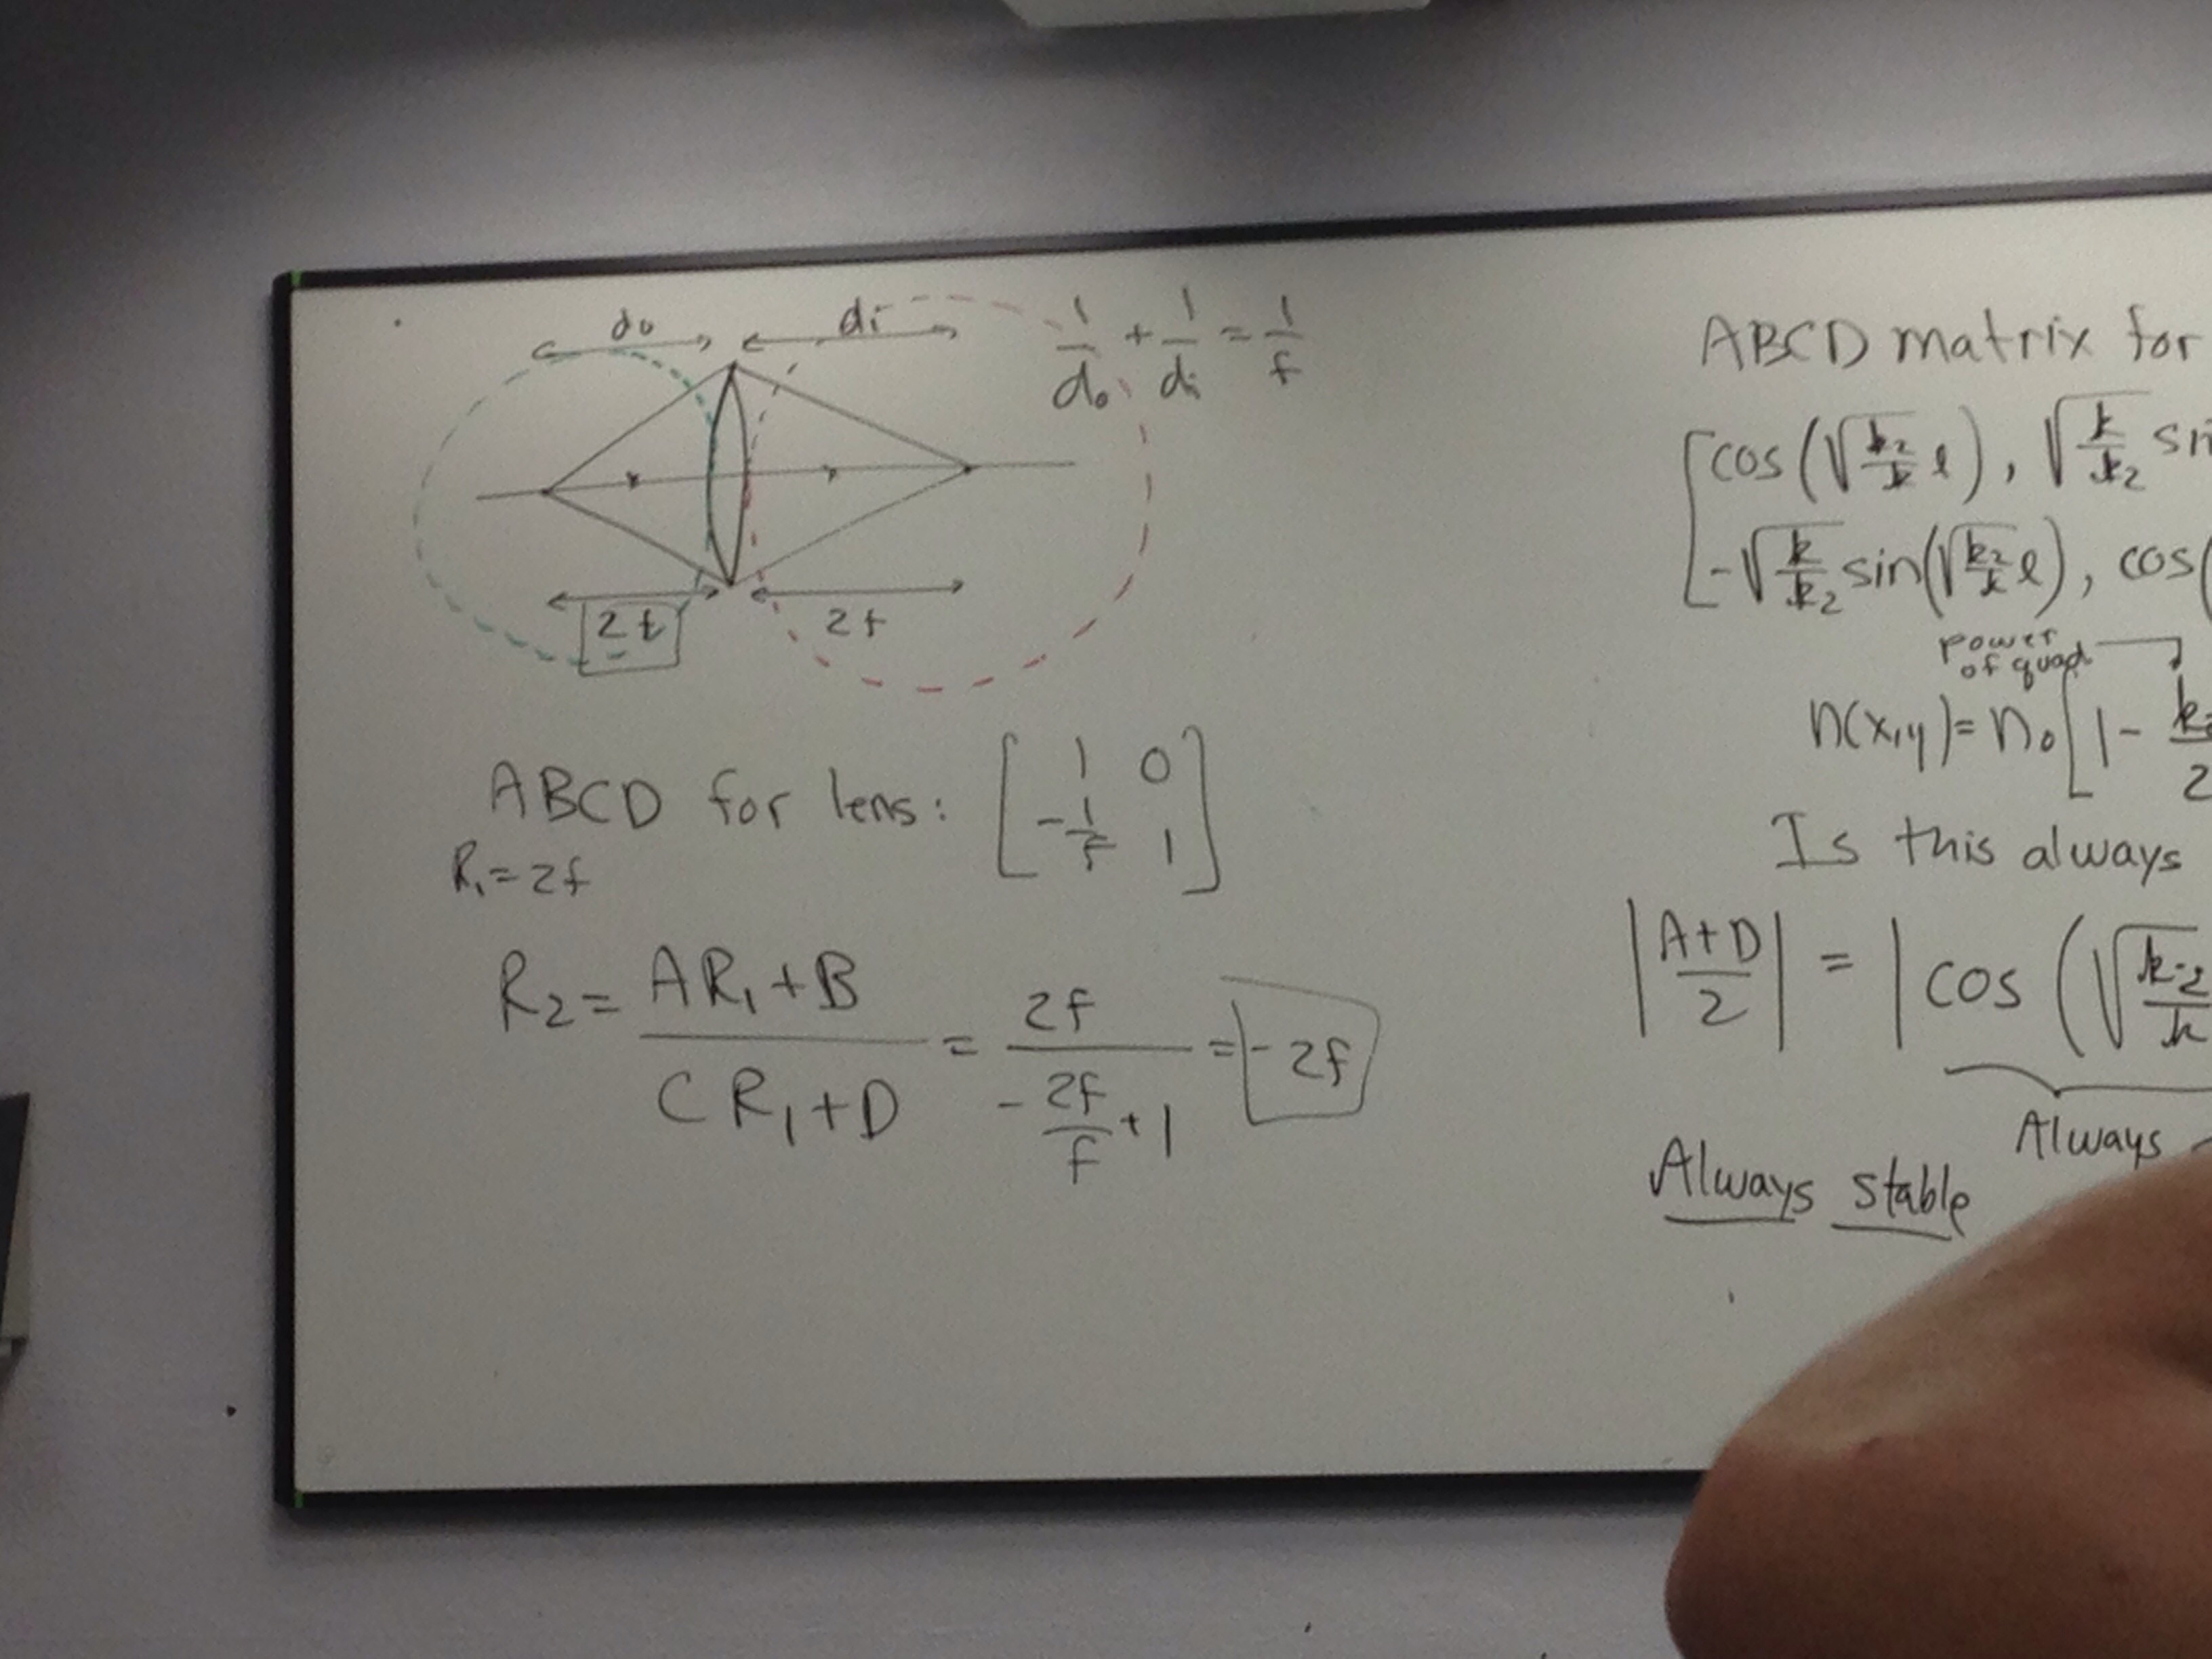 do di
1/do + 1/di = 1/f
2f 2f
ABCD for lens: [1 0; -1/f 1]
R₁ = 2f
R₂ = (AR₁ + B)/(CR₁ + D) = 2f/(-2f/f + 1) = -2f
ABCD matrix for
[cos(√(k₂/k) l), √(k/k₂) sin
-√(k/k₂) sin(√(k₂/k) l), cos(
power
of quad
n(x,y) = n₀[1 - k₂/2
Is this always
|(A+D)/2| = |cos(√(k₂/k)
Always
Always stable